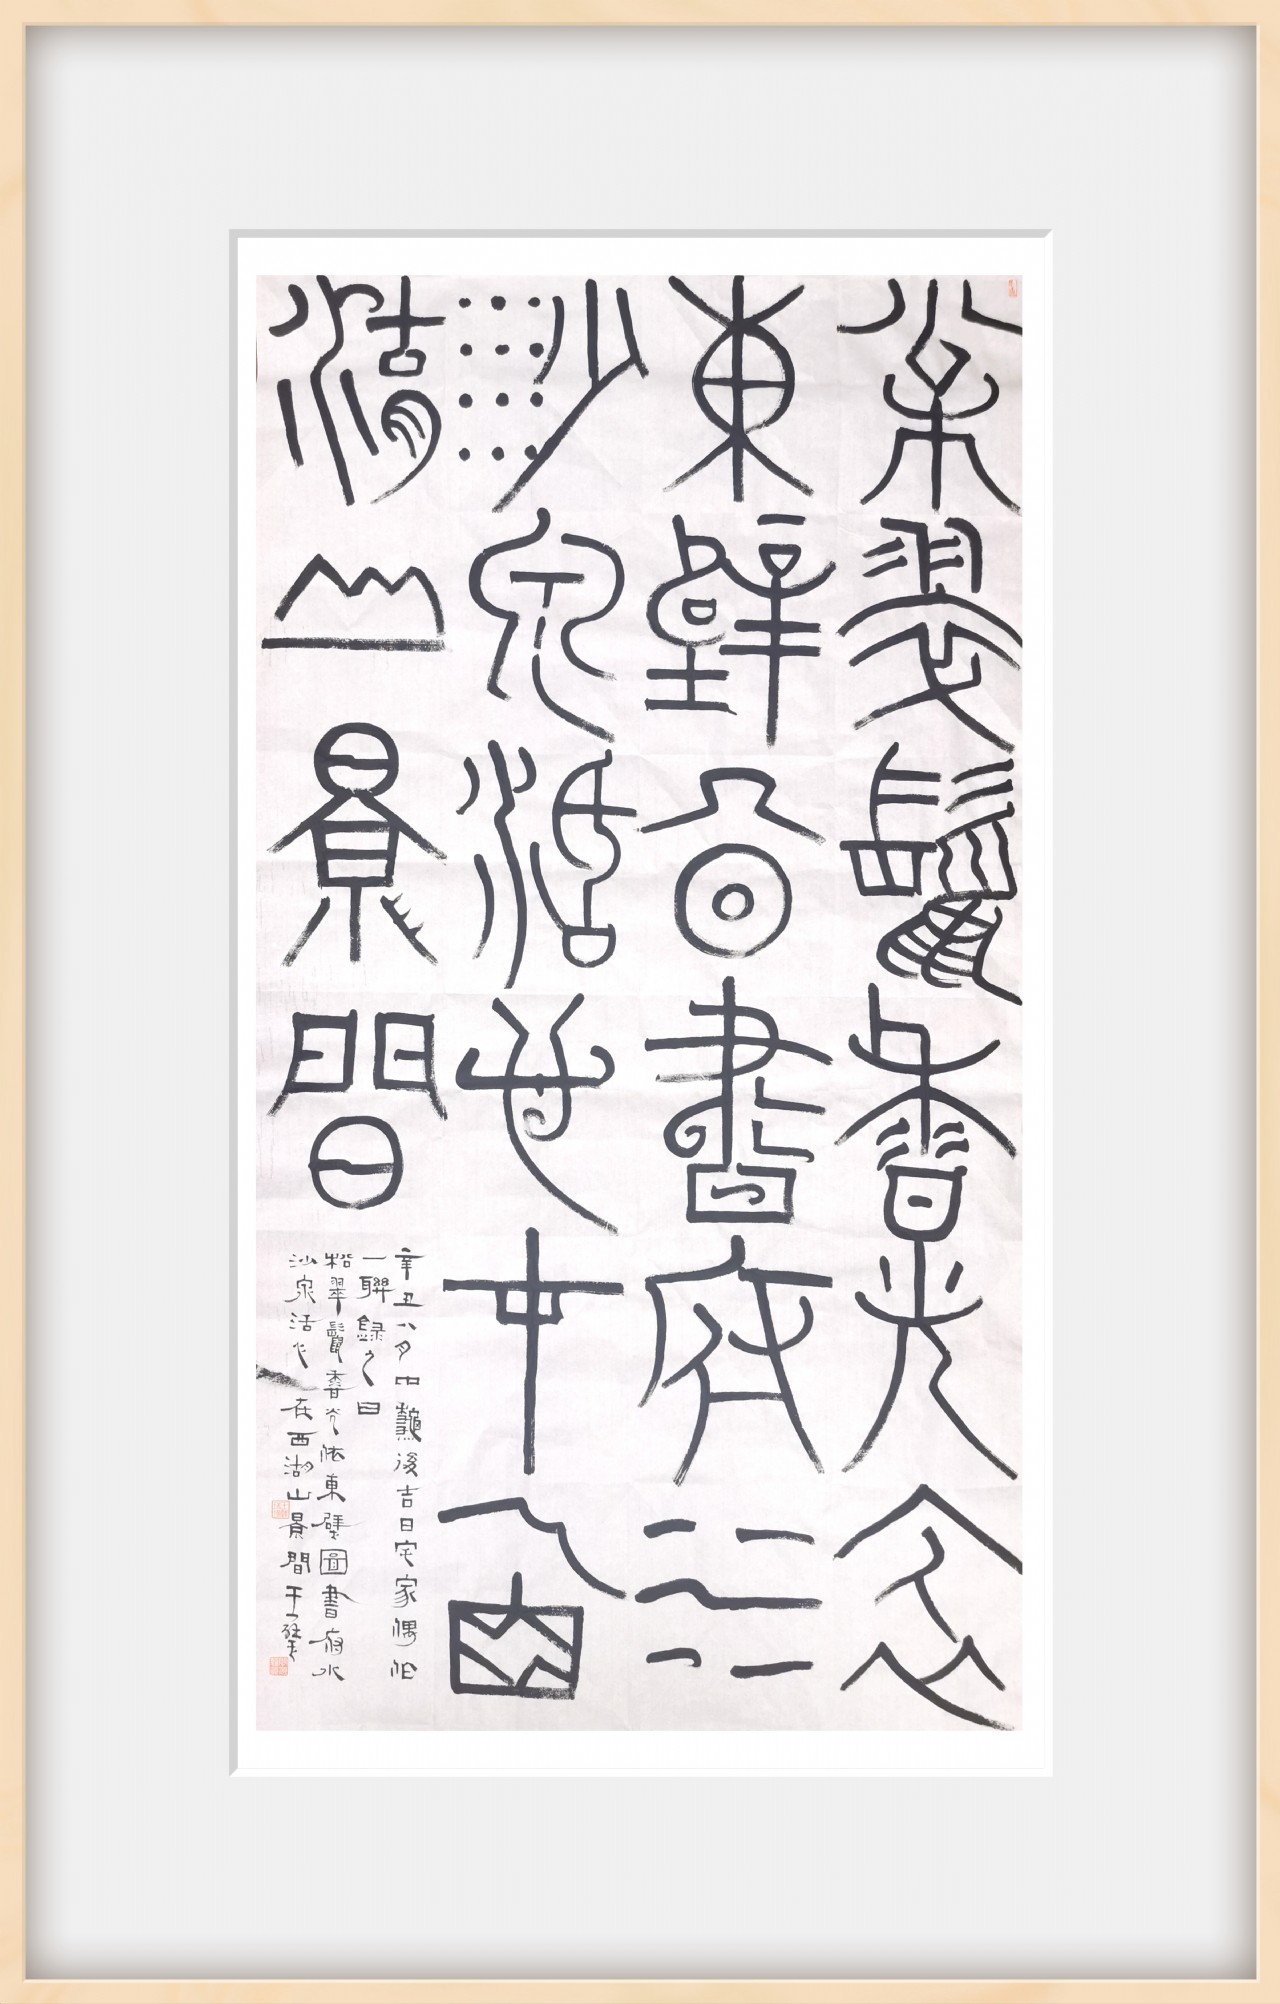 松翠鬟香光依
東壁圖書府水
沙泉活乍在西
湖山景間
辛丑八月四鷘後吉日宅家偶作
一聯錄之曰
松翠鬟香光依東壁圖書府水
沙泉活乍在西湖山景間王